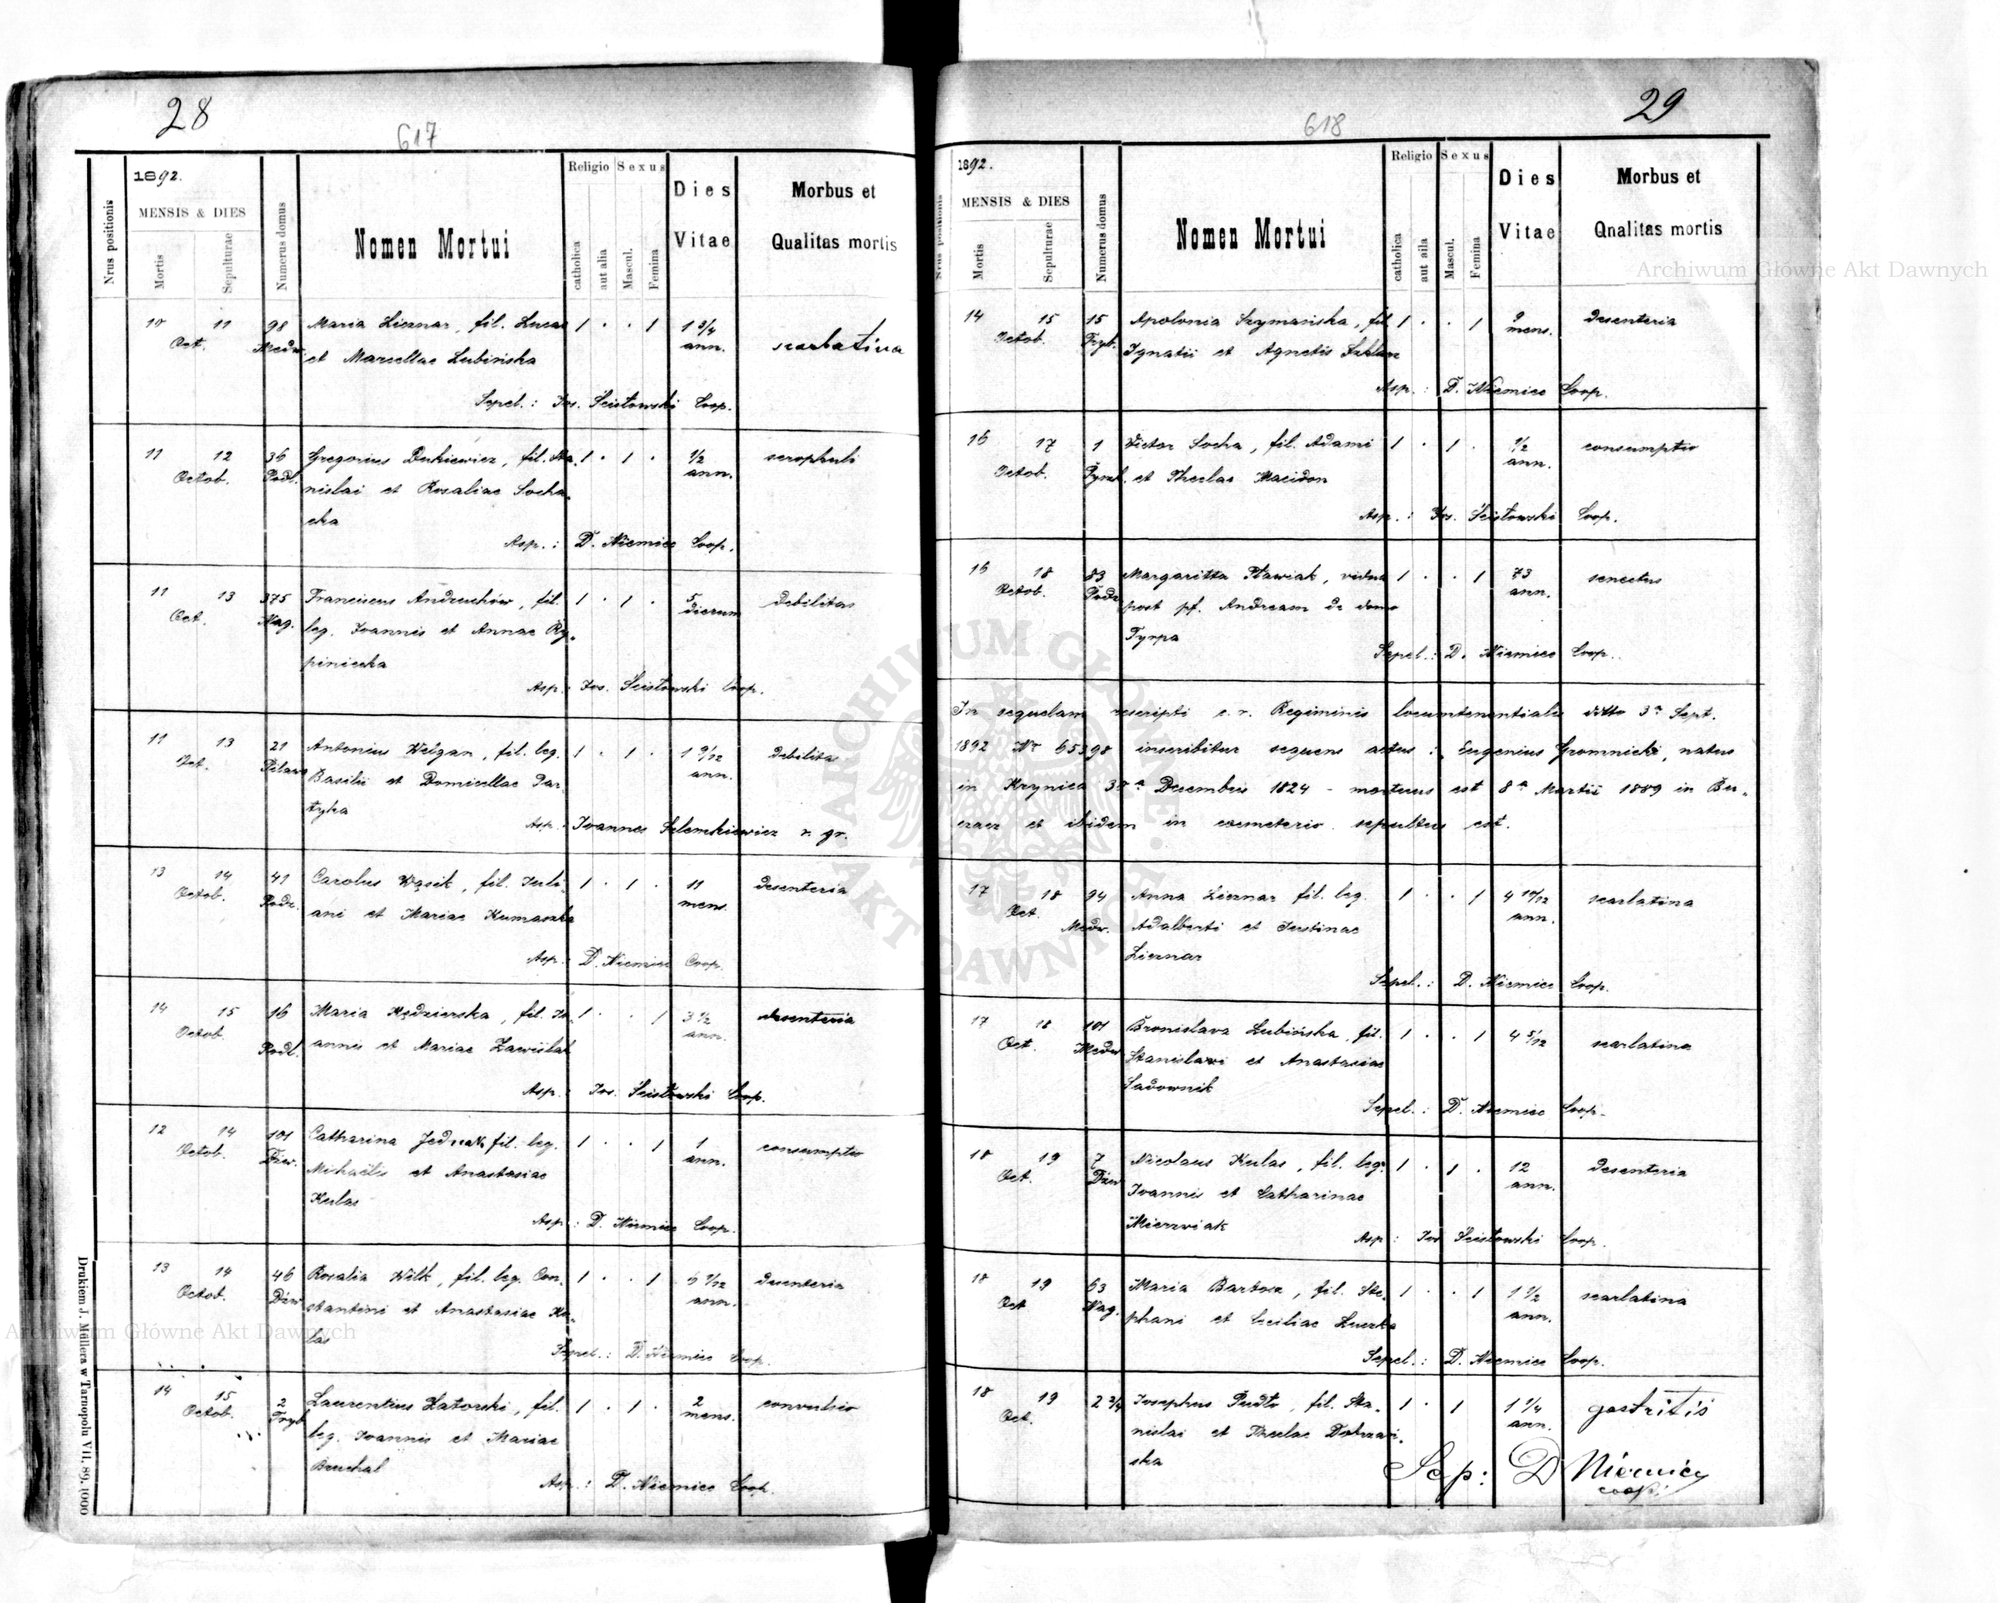 28
617
1892.
Nrus positionis
MENSIS & DIES
Mortis
Sepulturae
Numerus domus
Nomen Mortui
Religio
catholica
aut alia
Sexus
Mascul.
Femina
Dies
Vitae
Morbus et
Qualitas mortis
10 11 98 Maria Liernar, fil. Lucae 1 . . 1 1 3/4 scarlatina
Oct. Medw. et Marcellae Lubińska ann.
Sepel.: Jos. Seistowski Coop.
11 12 36 Gregorius Dukiewicz, fil. Sta- 1 . 1 . 1/2 scrophuli
Octob. Podl. nislai et Rosaliae Socha- ann.
cka
Asp.: D. Niemiec Coop.
11 13 375 Franciscus Andruchów, fil. 1 . 1 . 5 debilitas
Oct. Nag. leg. Joannis et Annae Ry- dierum
piniecka
Asp.: Jos. Seistowski Coop.
11 13 21 Antonius Welgan, fil. leg. 1 . 1 . 1 9/12 debilitas
Oct. Pilawa Basilii et Domicellae Par- ann.
tyka
Asp.: Joannes Selemkiewicz r. gr.
13 14 41 Carolus Wąsik, fil. Juli- 1 . 1 . 11 desenteria
Octob. Podz. ani et Mariae Kumaszka mens.
Asp.: D. Niemiec Coop.
14 15 16 Maria Kędzierska, fil. Jo- 1 . . 1 3 1/2 desenteria
Octob. Podl. annis et Mariae Zawiślak ann.
Asp.: Jos. Seistowski Coop.
12 14 101 Catharina Jednak fil. leg. 1 . . 1 1 consumptio
Octob. Michaelis et Anastasiae ann.
Kulas
Asp.: D. Niemiec Coop.
13 14 46 Rosalia Wilk, fil. leg. Con- 1 . . 1 desenteria
Octob. stantini et Anastasiae Ku- ann.
las
Sepel.: D. Niemiec Coop.
14 15 2 Laurentius Zatorski, fil. 1 . 1 . 2 convulsio
Octob. Tryb. leg. Joannis et Mariae mens.
Bruchal
Asp.: D. Niemiec Coop.
Drukiem J. Mellera w Tarnopolu VII. 89. 1000
29
618
1892.
Nrus positionis
MENSIS & DIES
Mortis
Sepulturae
Numerus domus
Nomen Mortui
Religio
catholica
aut alia
Sexus
Mascul.
Femina
Dies
Vitae
Morbus et
Qnalitas mortis
14 15 15 Apolonia Szymańska, fil. 1 . . 1 9 desenteria
Octob. Tryb. Ignatii et Agnetis mens.
Asp.: D. Niemiec Coop.
16 17 1 Victor Socha, fil. Adami 1 . 1 . 1/2 consumptio
Octob. et Theclae Macidon ann.
Asp.: Jos. Seistowski Coop.
16 18 83 Margaritta Stawiak, vidua 1 . . 1 73 senectus
Octob. Podz. post pf. Andream de domo ann.
Tyrpa
Sepel.: D. Niemiec Coop.
In sequelam rescripti c. r. Regiminis locumtenentialis ddto 3a Sept.
1892 Nr 65398 inscribitur sequens actus: Eugenius Gromnicki, natus
in Krynica 30a Decembris 1824 - mortuus est 8a Martii 1889 in Bu-
czacz et ibidem in coemeterio sepultus est.
17 18 94 Anna Liernar fil. leg. 1 . . 1 4 10/12 scarlatina
Oct. Medw. Adalberti et Justinae ann.
Liernar
Sepel.: D. Niemiec Coop.
17 18 101 Bronislava Lubińska, fil. 1 . . 1 4 5/12 scarlatina
Oct. Medw. Stanislai et Anastasiae
Sadownik
Sepel.: D. Niemiec Coop.
18 19 7 Nicolaus Kulas, fil. leg. 1 . 1 . 12 desenteria
Oct. Dźw. Joannis et Catharinae ann.
Mierzwiak
Asp.: Jos. Seistowski Coop.
18 19 63 Maria Bartosz, fil. Ste- 1 . . 1 1 1/2 scarlatina
Oct Nag. phani et Ceciliae Luczka ann.
Sepel.: D. Niemiec Coop.
18 19 2 2/4 Josephus Pudło, fil. Sta- 1 . 1 1 1/4 gastritis
Oct. nislai et Theclae Dobrzań- ann.
ska
Sep: D Niemiec
coop.
Archiwum Główne Akt Dawnych
Archiwum Główne Akt Dawnych
ARCHIWUM GŁÓWNE
AKT DAWNYCH